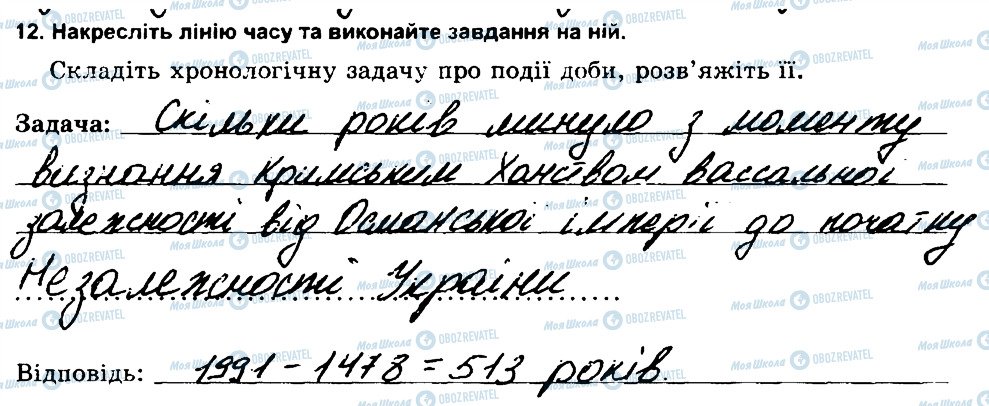 12. Накресліть лінію часу та виконайте завдання на ній.
Складіть хронологічну задачу про події доби, розв’яжіть її.
Задача: Скільки років минуло з моменту
визнання Кримським Ханством вассальної
залежності від Османської імперії до початку
Незалежності України
Відповідь: 1991 – 1478 = 513 років.